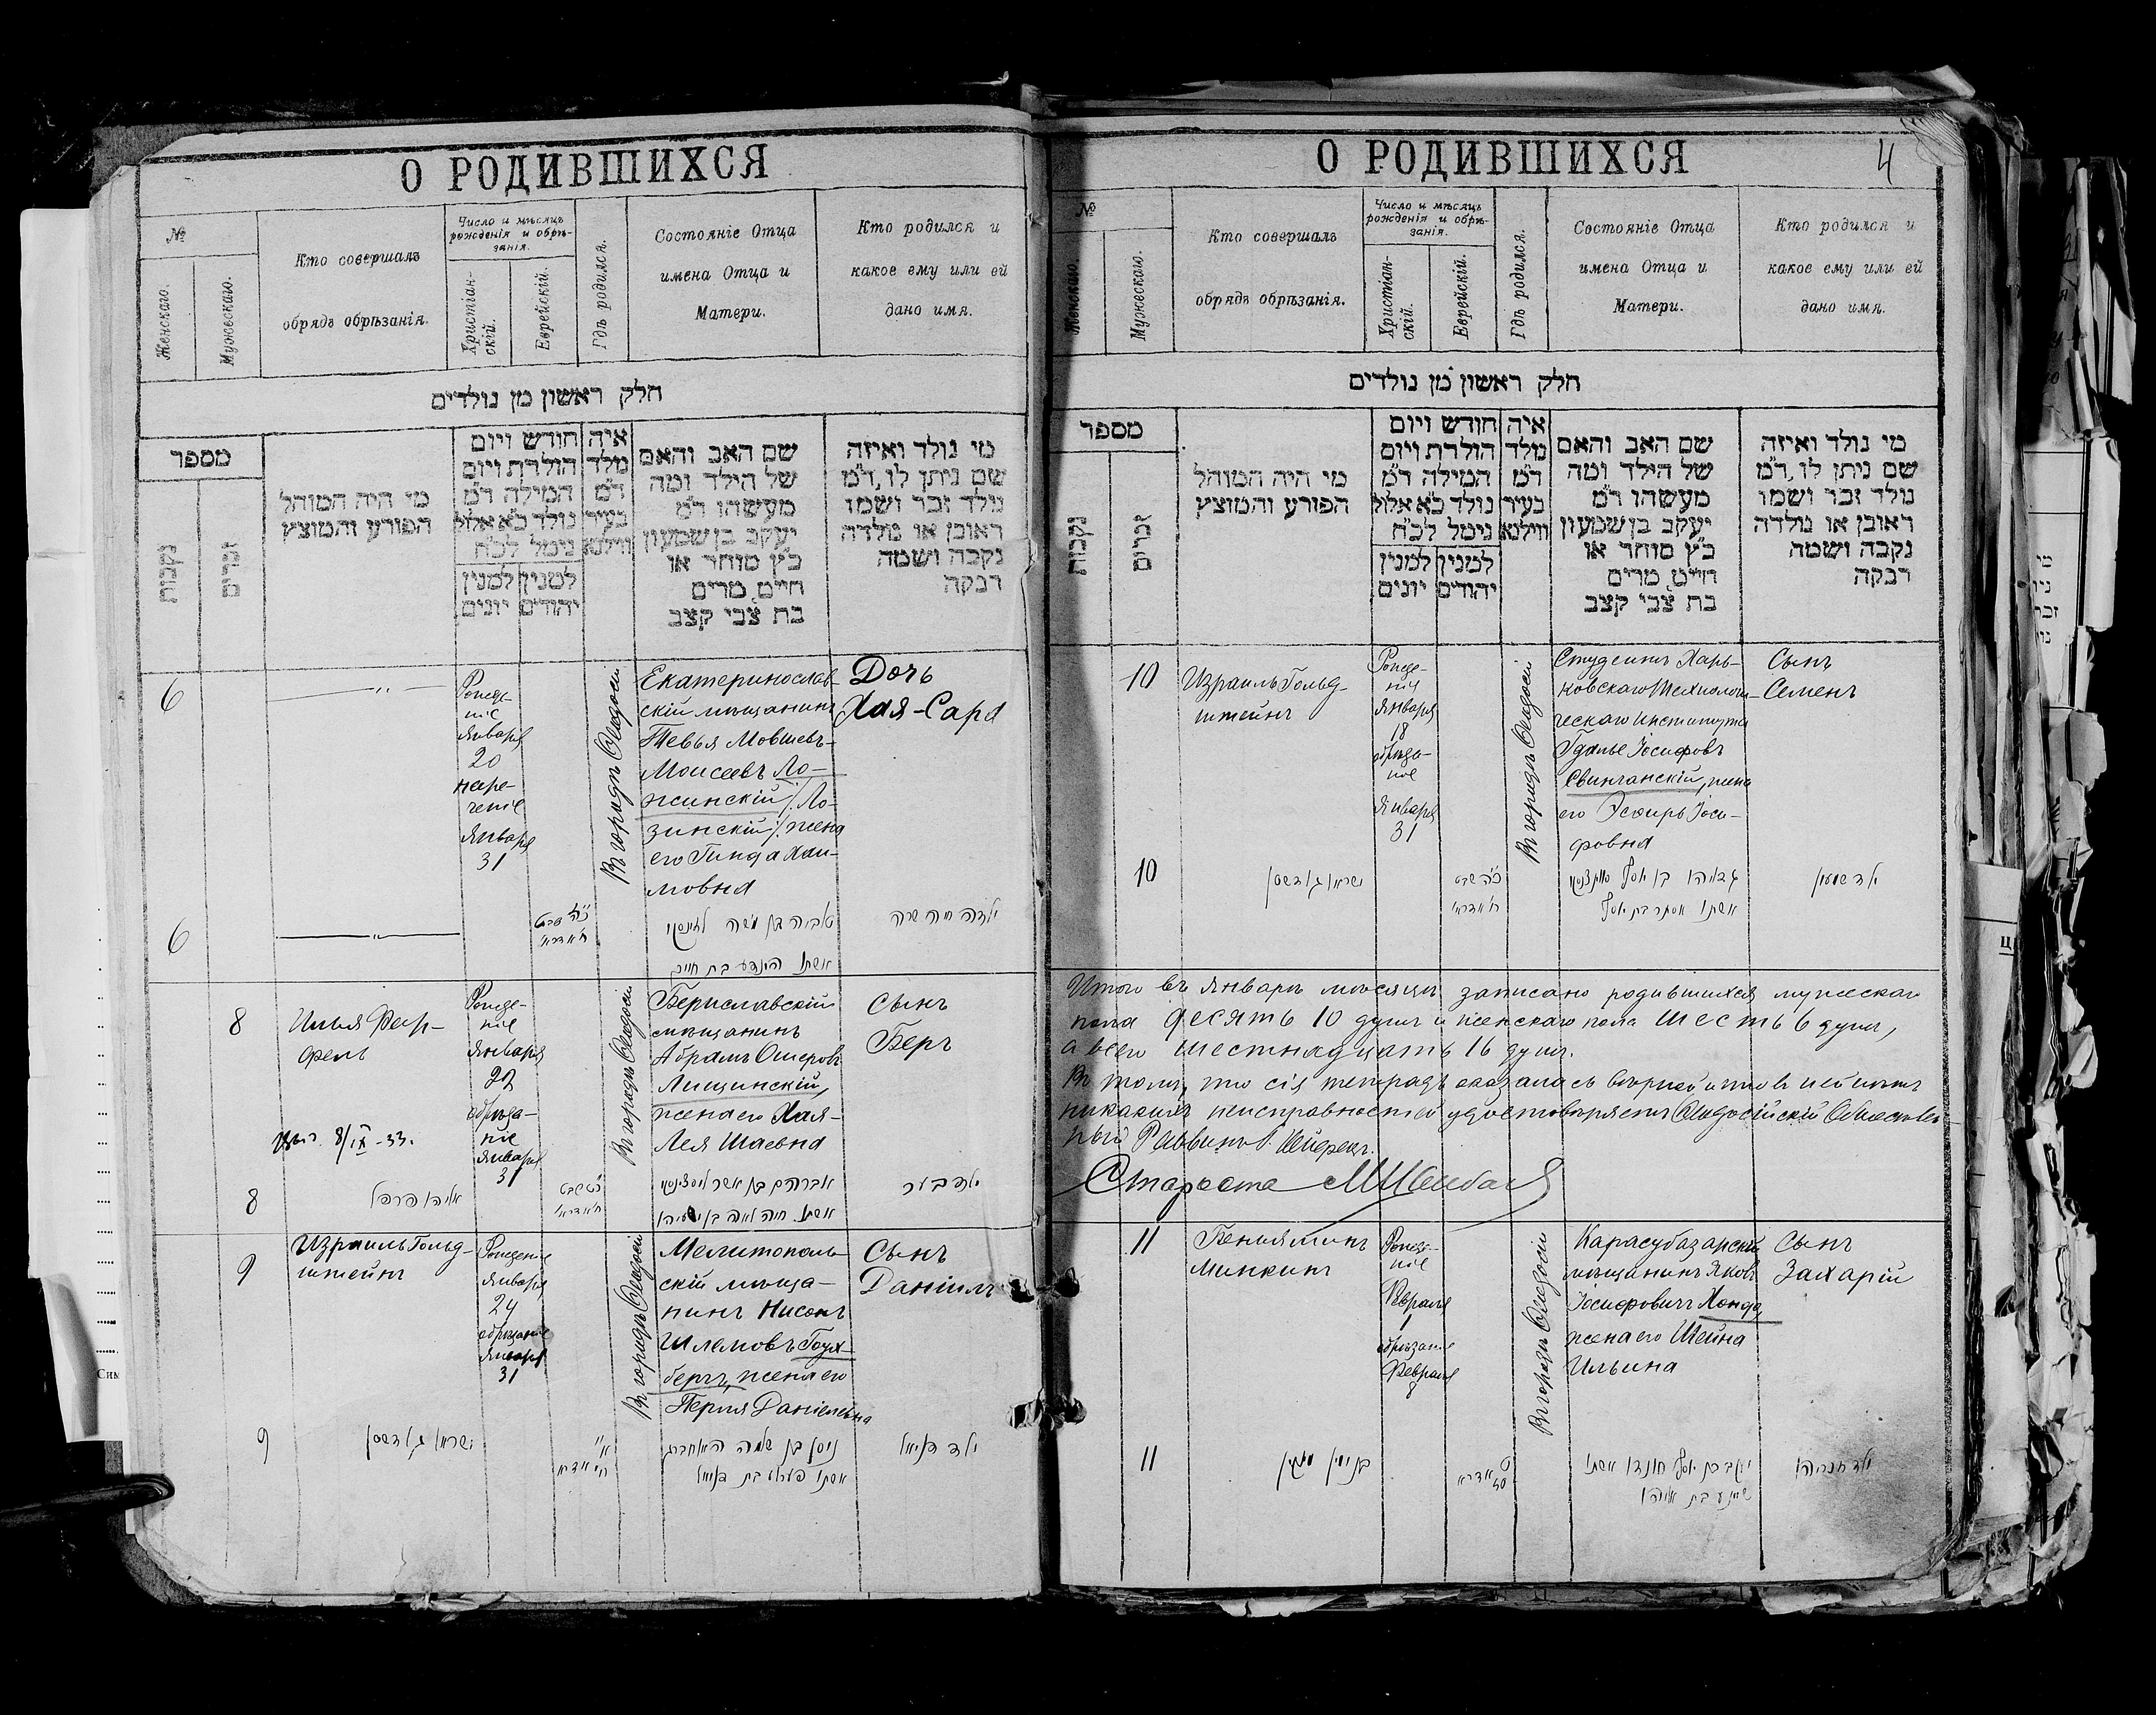 О РОДИВШИХСЯ
№
Женскаго.
Мужескаго.
Кто совершалъ
обрядъ обрѣзанія.
Число и мѣсяцъ
рожденія и обрѣ-
занія.
Христіан-
скій.
Еврейскій.
Гдѣ родился.
Состояніе Отца
имена Отца и
Матери.
Кто родился и
какое ему или ей
дано имя.
חלק ראשון מן נולדים
מספר
נקבות
זכרים
מי היה המוהל
הפורע והמוצץ
חודש ויום
הולדת ויום
המילה ד״מ
נולד כ״א אלול
נימל לכ״ח
למנין
יונים
למנין
יהודים
איה
מלד
ד״מ
בעיר
ווילנא
שם האב והאם
של הילד ומה
מעשהו ד״מ
יעקב בן שמעון
כ״ץ סוחר או
חייט, מרים
בת צבי קצב
מי נולד ואיזה
שם ניתן לו, ד״מ
נולד זכר ושמו
ראובן או נולדה
נקבה ושמה
רבקה
6
Рожде-
ніе
Января
20
наре-
ченіе
Января
31
Въ городѣ Ѳеодосіи
Екатеринослав-
скій мѣщанинъ
Тевья Мовшевъ-
Моисеевъ Ло-
жинскій /Ло-
зинскій/, жена
его Гинда Хаи-
мовна
Дочь
Хая-Сара
6
טוביה בן משה
אשתו הינדע בת חיים
ילדה חיה שרה
8
Илья Фер-
фель
Рожде-
ніе
Января
22
обрѣза-
ніе
Января
31
8/IX-33.
Въ городѣ Ѳеодосіи
Бериславскій
мѣщанинъ
Абрамъ Ошеровъ
Лищинскій,
жена его Хая-
Лея Шаевна
Сынъ
Беръ
8
אליהו פרפל
אברהם בן אשר
ילד בער
9
Израиль Гольд-
штейнъ
Рожденіе
Января
24
обрѣзаніе
Января
31
Въ городѣ Ѳеодосіи
Мелитополь-
скій мѣща-
нинъ Нисонъ
Шлемовъ Гоух-
бергъ, жена его
Перля Даніелевна
Сынъ
Даніилъ
9
ישראל גולדשטין
ניסן בן שלמה
אשתו פערלע בת דניאל
ילד דניאל
О РОДИВШИХСЯ
4
№
Женскаго.
Мужескаго.
Кто совершалъ
обрядъ обрѣзанія.
Число и мѣсяцъ
рожденія и обрѣ-
занія.
Христіан-
скій.
Еврейскій.
Гдѣ родился.
Состояніе Отца
имена Отца и
Матери.
Кто родился и
какое ему или ей
дано имя.
חלק ראשון מן נולדים
מספר
נקבות
זכרים
מי היה המוהל
הפורע והמוצץ
חודש ויום
הולדת ויום
המילה ד״מ
נולד כ״א אלול
נימל לכ״ח
למנין
יונים
למנין
יהודים
איה
מלד
ד״מ
בעיר
ווילנא
שם האב והאם
של הילד ומה
מעשהו ד״מ
יעקב בן שמעון
כ״ץ סוחר או
חייט, מרים
בת צבי קצב
מי נולד ואיזה
שם ניתן לו, ד״מ
נולד זכר ושמו
ראובן או נולדה
נקבה ושמה
רבקה
10
Израиль Гольд-
штейнъ
Рожде-
ніе
Января
18
обрѣза-
ніе
Января
31
Въ городѣ Ѳеодосіи
Студентъ Харь-
ковскаго Технологи-
ческаго Института
Гдалье Іосифовъ
Свинчанскій, жена
его Эсѳирь Іоси-
фовна
Сынъ
Семенъ
10
ישראל גולדשטין
גדליהו בן יוסף
אשתו אסתר בת יוסף
ילד שמעון
Итого въ Январѣ мѣсяцѣ записано родившихся мужескаго
пола десять 10 душъ и женскаго пола шесть 6 душъ,
а всего шестнадцать 16 душъ.
Въ томъ, что сія тетрадь оказалась вѣрной и что въ ней нѣтъ
никакихъ неисправностей удостовѣряетъ Ѳеодосійскій Обществен-
ный Раввинъ
Староста
11
Беньяминъ
Минкинъ
Рожде-
ніе
Февраля
1
обрѣзаніе
Февраля
8
Въ городѣ Ѳеодосіи
Карасубазарскій
мѣщанинъ Яковъ
Іосифовичъ Хонда,
жена его Шейна
Ильина
Сынъ
Захарій
11
בנימין מינקין
יעקב בן יוסף חונדא אשתו
שיינע בת אליהו
ילד זכריהו